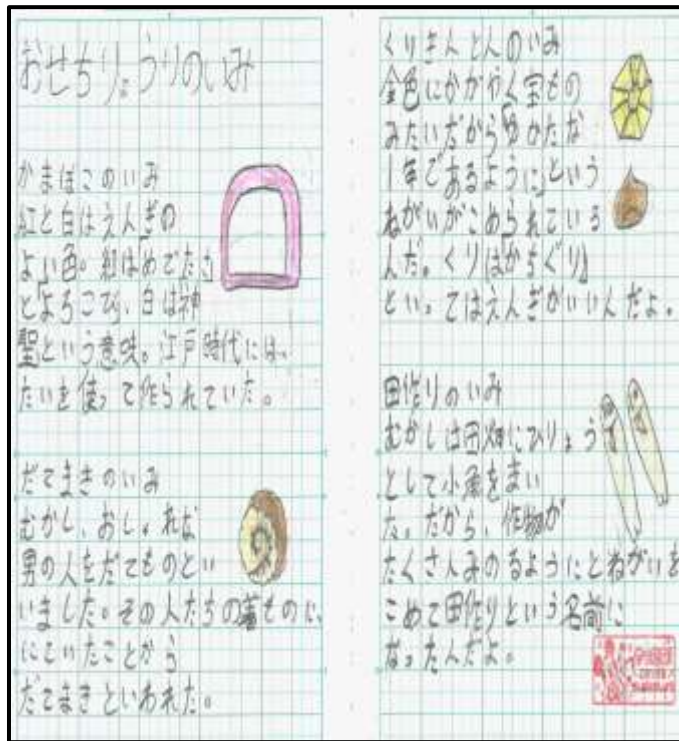 おせちりょうりのいみ
かまぼこのいみ
紅と白はえんぎの
よい色。紅はめでたさ
とよろこび、白は神
聖という意味。江戸時代には、
たいを使って作られていた。
だてまきのいみ
むかし、おしゃれな
男の人をだてものとい
いました。その人たちの着ものに、
にていたことから
だてまきといわれた。
くりきんとんのいみ
金色にかがやく宝もの
みたいだから「ゆたかな
1年であるように」という
ねがいがこめられている
んだ。くりは「かちぐり」
といってはえんぎがいいんだよ。
田作りのいみ
むかしは田畑にひりょう
として小魚をまい
た。だから、作物が
たくさんみのるようにとねがいを
こめて田作りという名前に
なったんだよ。